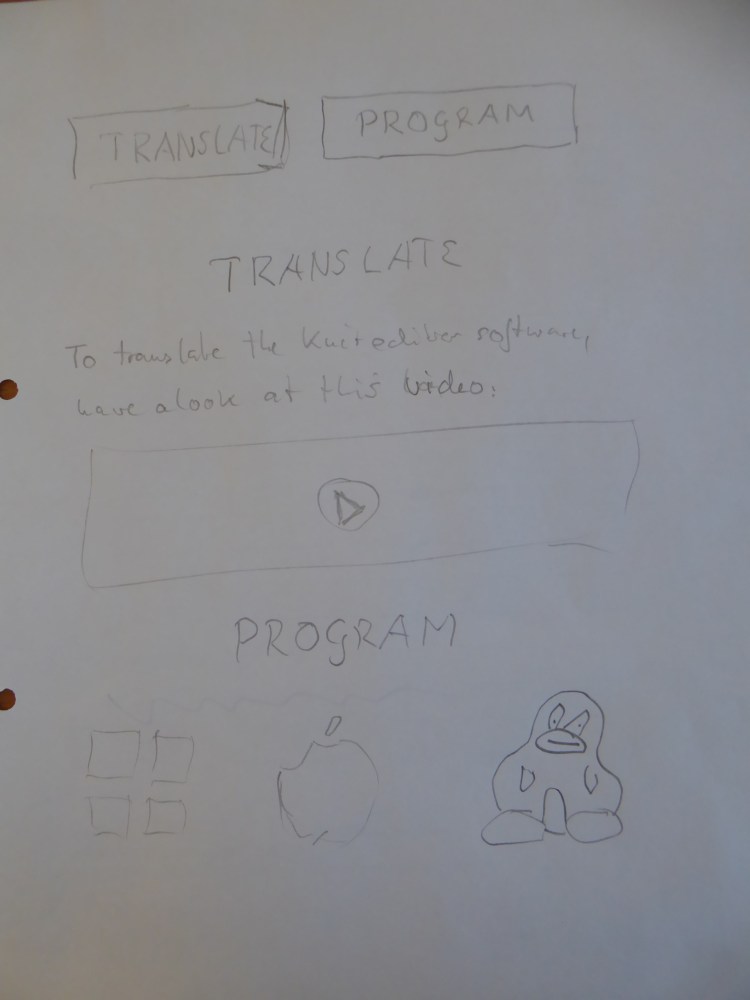 TRANSLATE
PROGRAM
TRANSLATE
To translate the software,
have a look at this video:
PROGRAM